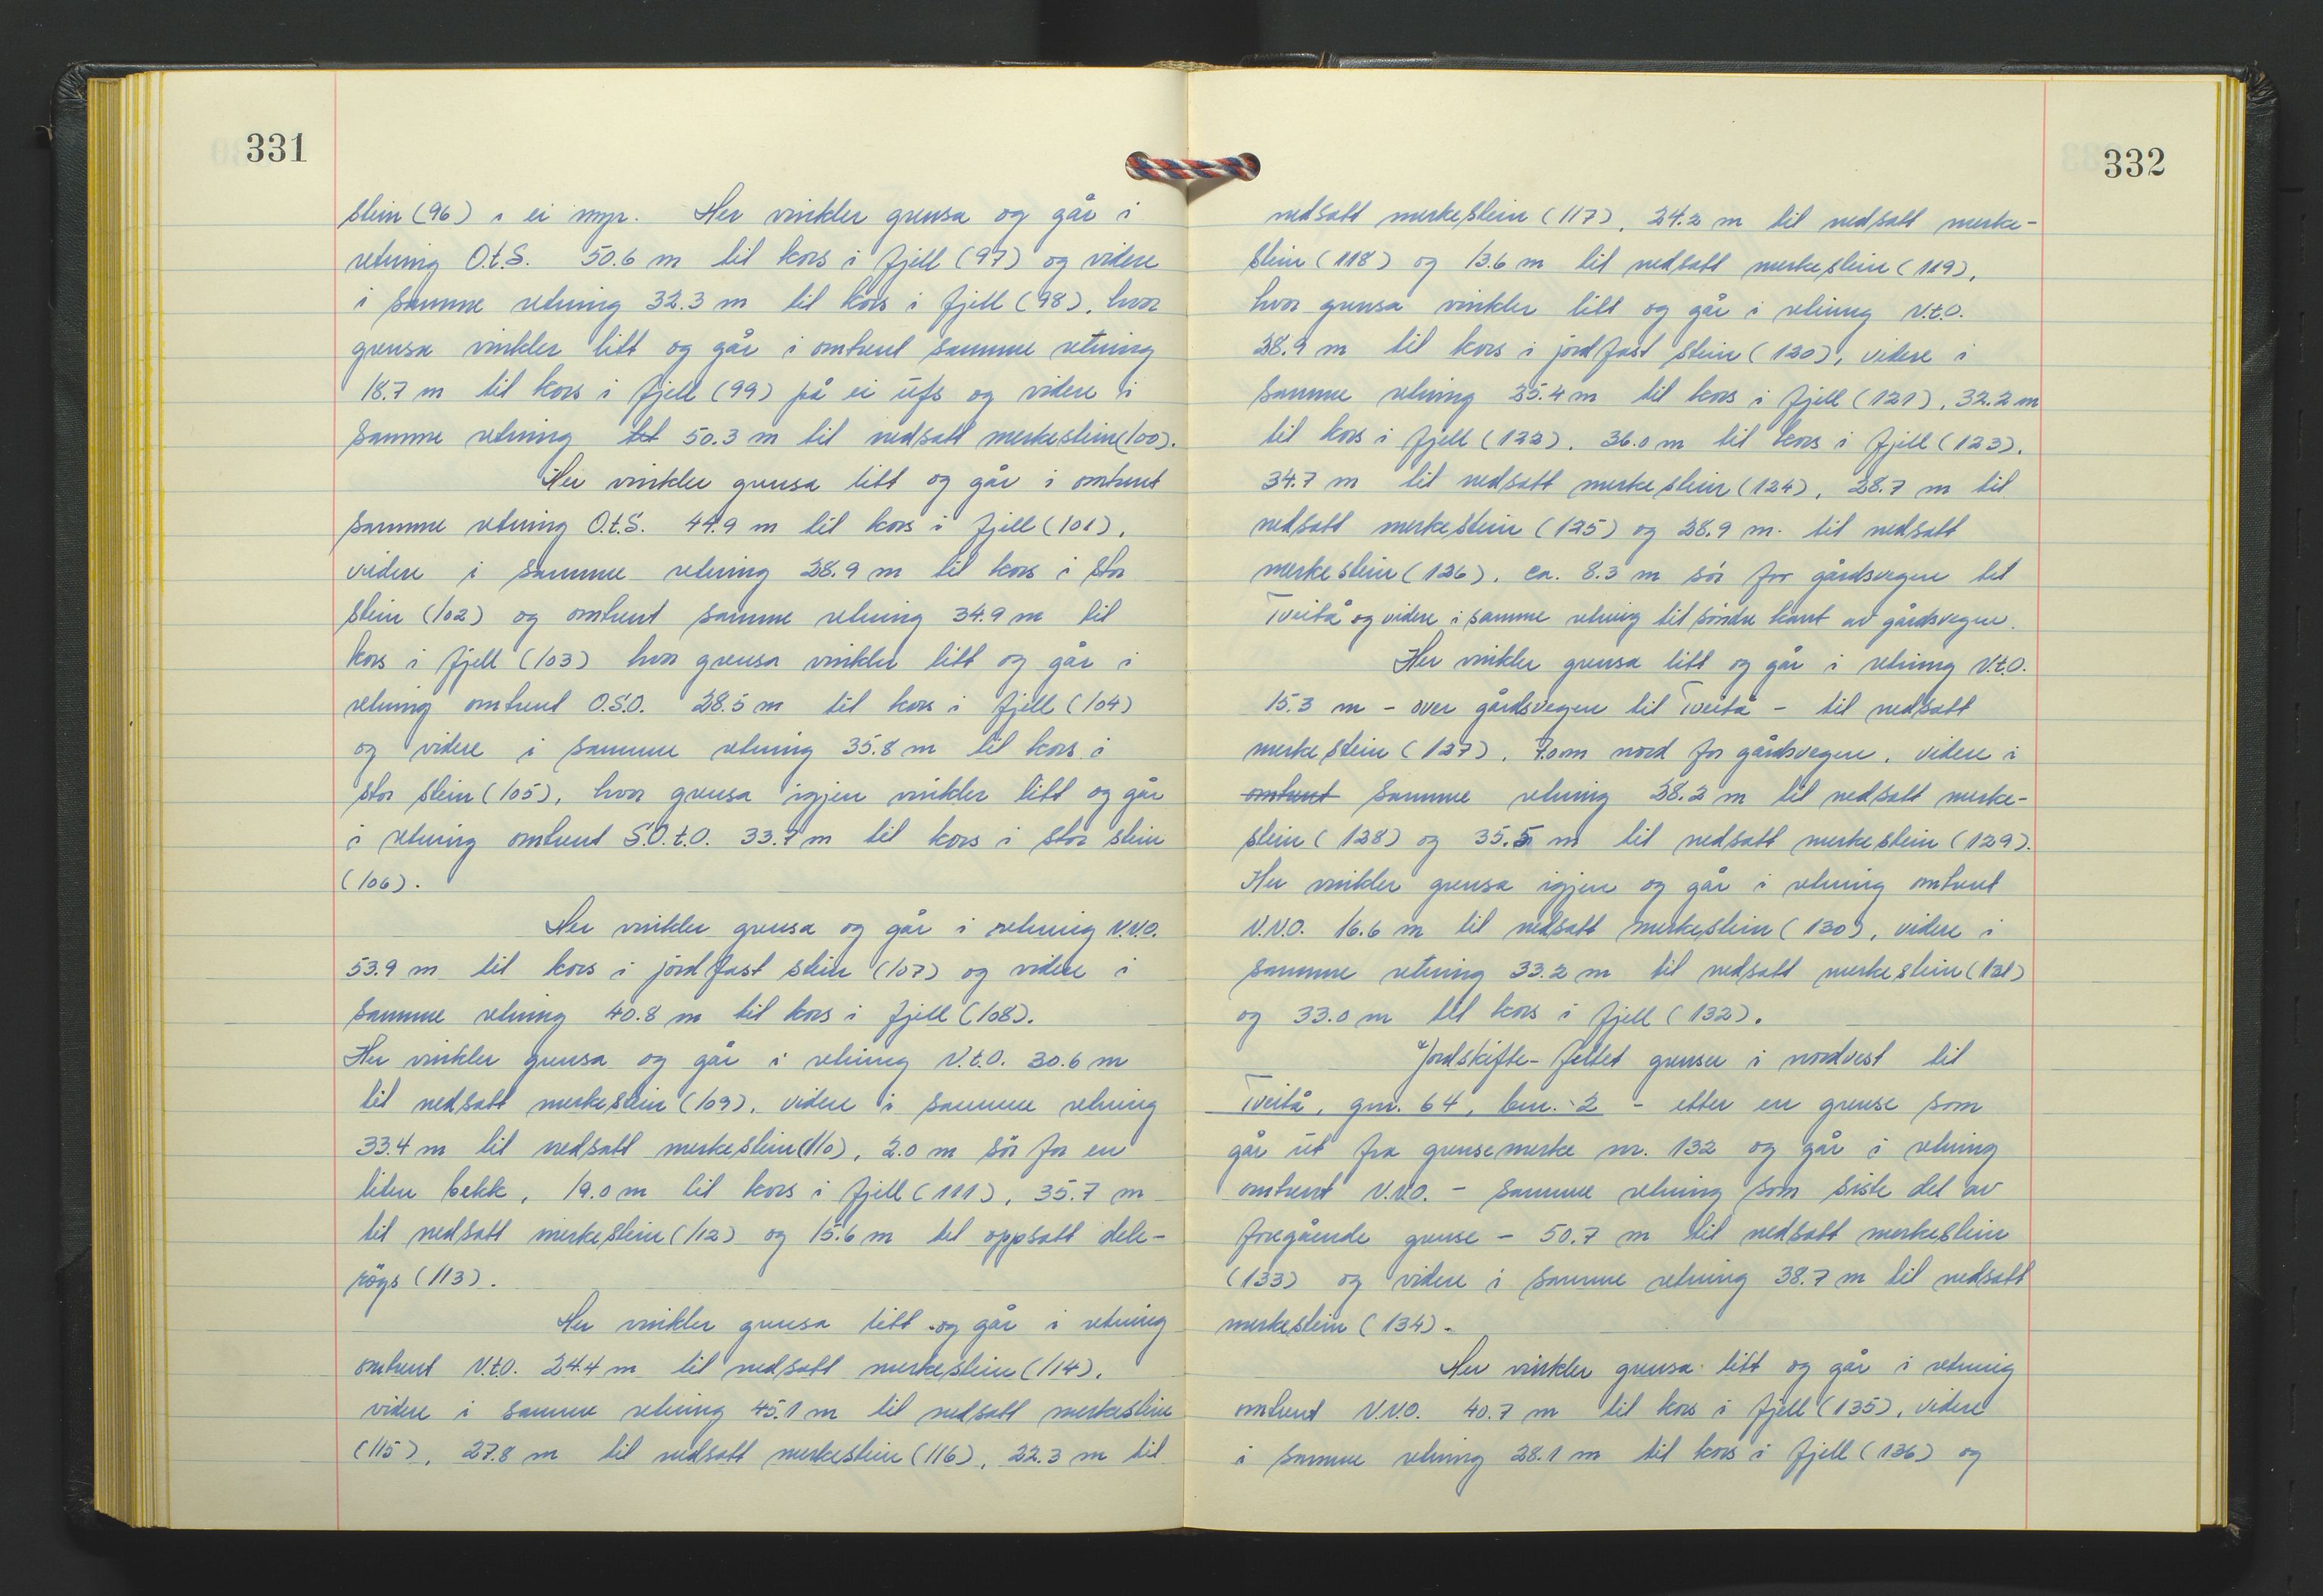 331
stein (96) i ei myr. Her vinkler grensa og går i
retning O.t.S. 50.6 m til kors i fjell (97) og videre
i samme retning 32.3 m til kors i fjell (98), hvor
grensa vinkler litt og går i omtrent samme retning
18.7 m til kors i fjell (99) på ei ufs og videre i
samme retning tel 50.3 m til nedsatt merkestein (100).
Her vinkler grensa litt og går i omtrent
samme retning O.t.S. 44.9 m til kors i fjell (101),
videre i samme retning 28.9 m til kors i stor
stein (102) og omtrent samme retning 34.9 m til
kors i fjell (103) hvor grensa vinkler litt og går i
retning omtrent O.S.O. 28.5 m til kors i fjell (104)
og videre i samme retning 35.8 m til kors i
stor stein (105), hvor grensa igjen vinkler litt og går
i retning omtrent S.O.t.O. 33.7 m til kors i stor stein
(106).
Her vinkler grensa og går i retning N.N.O.
53.9 m til kors i jordfast stein (107) og videre i
samme retning 40.8 m til kors i fjell (108).
Her vinkler grensa og går i retning N.t.O. 30.6 m
til nedsatt merkestein (109), videre i samme retning
33.4 m til nedsatt merkestein (110), 2.0 m sör for en
liten bekk, 19.0 m til kors i fjell (111), 35.7 m
til nedsatt merkestein (112) og 15.6 m til oppsatt dele-
röys (113).
Her vinkler grensa litt og går i retning
omtrent N.t.O. 24.4 m til nedsatt merkestein (114),
videre i samme retning 45.1 m til nedsatt merkestein
(115), 27.8 m til nedsatt merkestein (116), 22.3 m til
332
nedsatt merkestein (117), 24.2 m til nedsatt merke-
stein (118) og 13.6 m til nedsatt merkestein (119),
hvor grensa vinkler litt og går i retning N.t.O.
28.9 m til kors i jordfast stein (120), videre i
samme retning 35.4 m til kors i fjell (121), 32.2 m
til kors i fjell (122), 36.0 m til kors i fjell (123),
34.7 m til nedsatt merkestein (124), 28.7 m til
nedsatt merkestein (125) og 28.9 m til nedsatt
merkestein (126), ca. 8.3 m sör for gårdsvegen til
Tveitå og videre i samme retning til söndre kant av gårdsvegen.
Her vinkler grensa litt og går i retning N.t.O.
15.3 m - over gårdsvegen til Tveitå - til nedsatt
merkestein (127), 7.0 m nord for gårdsvegen, videre i
omtrent samme retning 38.2 m til nedsatt merke-
stein (128) og 35.5 m til nedsatt merkestein (129).
Her vinkler grensa igjen og går i retning omtrent
N.N.O. 16.6 m til nedsatt merkestein (130), videre i
samme retning 33.2 m til nedsatt merkestein (131)
og 33.0 m til kors i fjell (132).
Jordskifte-feltet grenser i nordvest til
Tveitå, gnr. 64, bnr. 2 - etter en grense som
går ut fra grensemerke nr. 132 og går i retning
omtrent N.N.O. - samme retning som siste del av
foregående grense - 50.7 m til nedsatt merkestein
(133) og videre i samme retning 38.7 m til nedsatt
merkestein (134).
Her vinkler grensa litt og går i retning
omtrent N.N.O. 40.7 m til kors i fjell (135), videre
i samme retning 28.1 m til kors i fjell (136) og